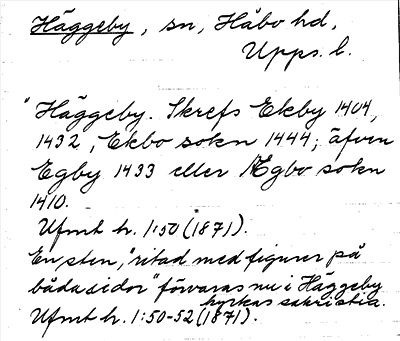 Häggeby, sn, Håbo hd,
Upps. l.
"Häggeby. Skrefs Ekeby 1404,
1432, Ekbo sokn 1444; äfven
Egby 1433 eller Ægbo sokn
1410.
Ufmt h. 1:50 (1871).
En sten, "ritad med figurer på
båda sidor" förvaras nu i Häggeby
kyrkas sakristia.
Ufmt h. 1:50-52 (1871).